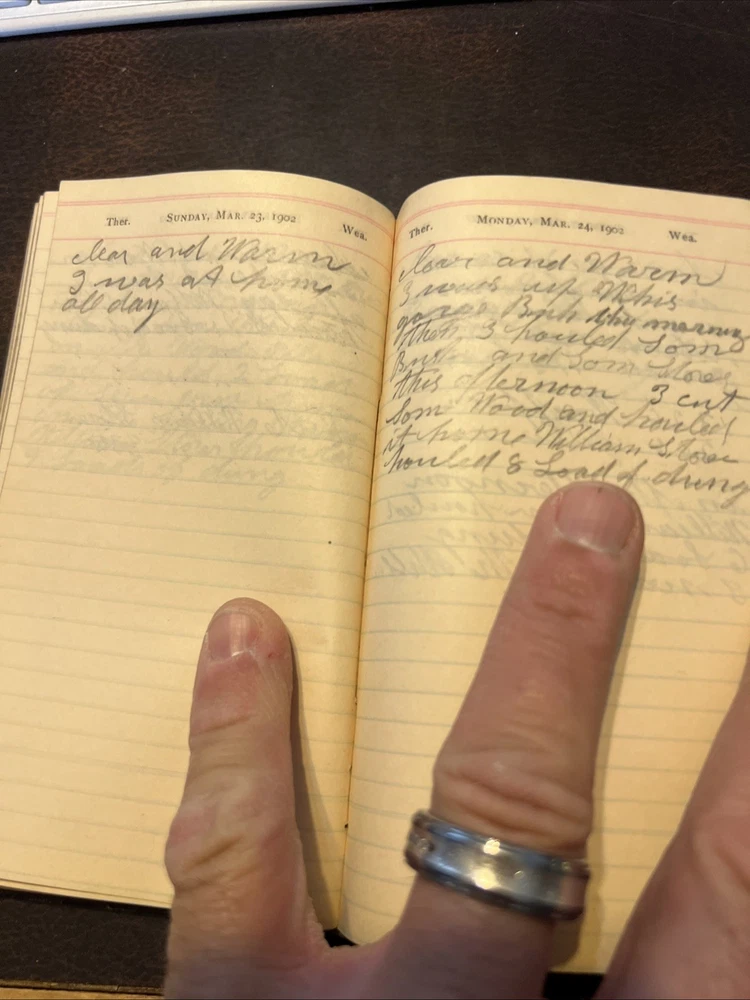 Ther. SUNDAY, MAR. 23, 1902 Wea.
clear and Warm
I was at home
all day
Ther. MONDAY, MAR. 24, 1902 Wea.
clear and Warm
I was up
this morning
then I houled Som
and Som Stones
this afternoon I cut
Som Wood and houled
it home William
houled 8 Load of dung